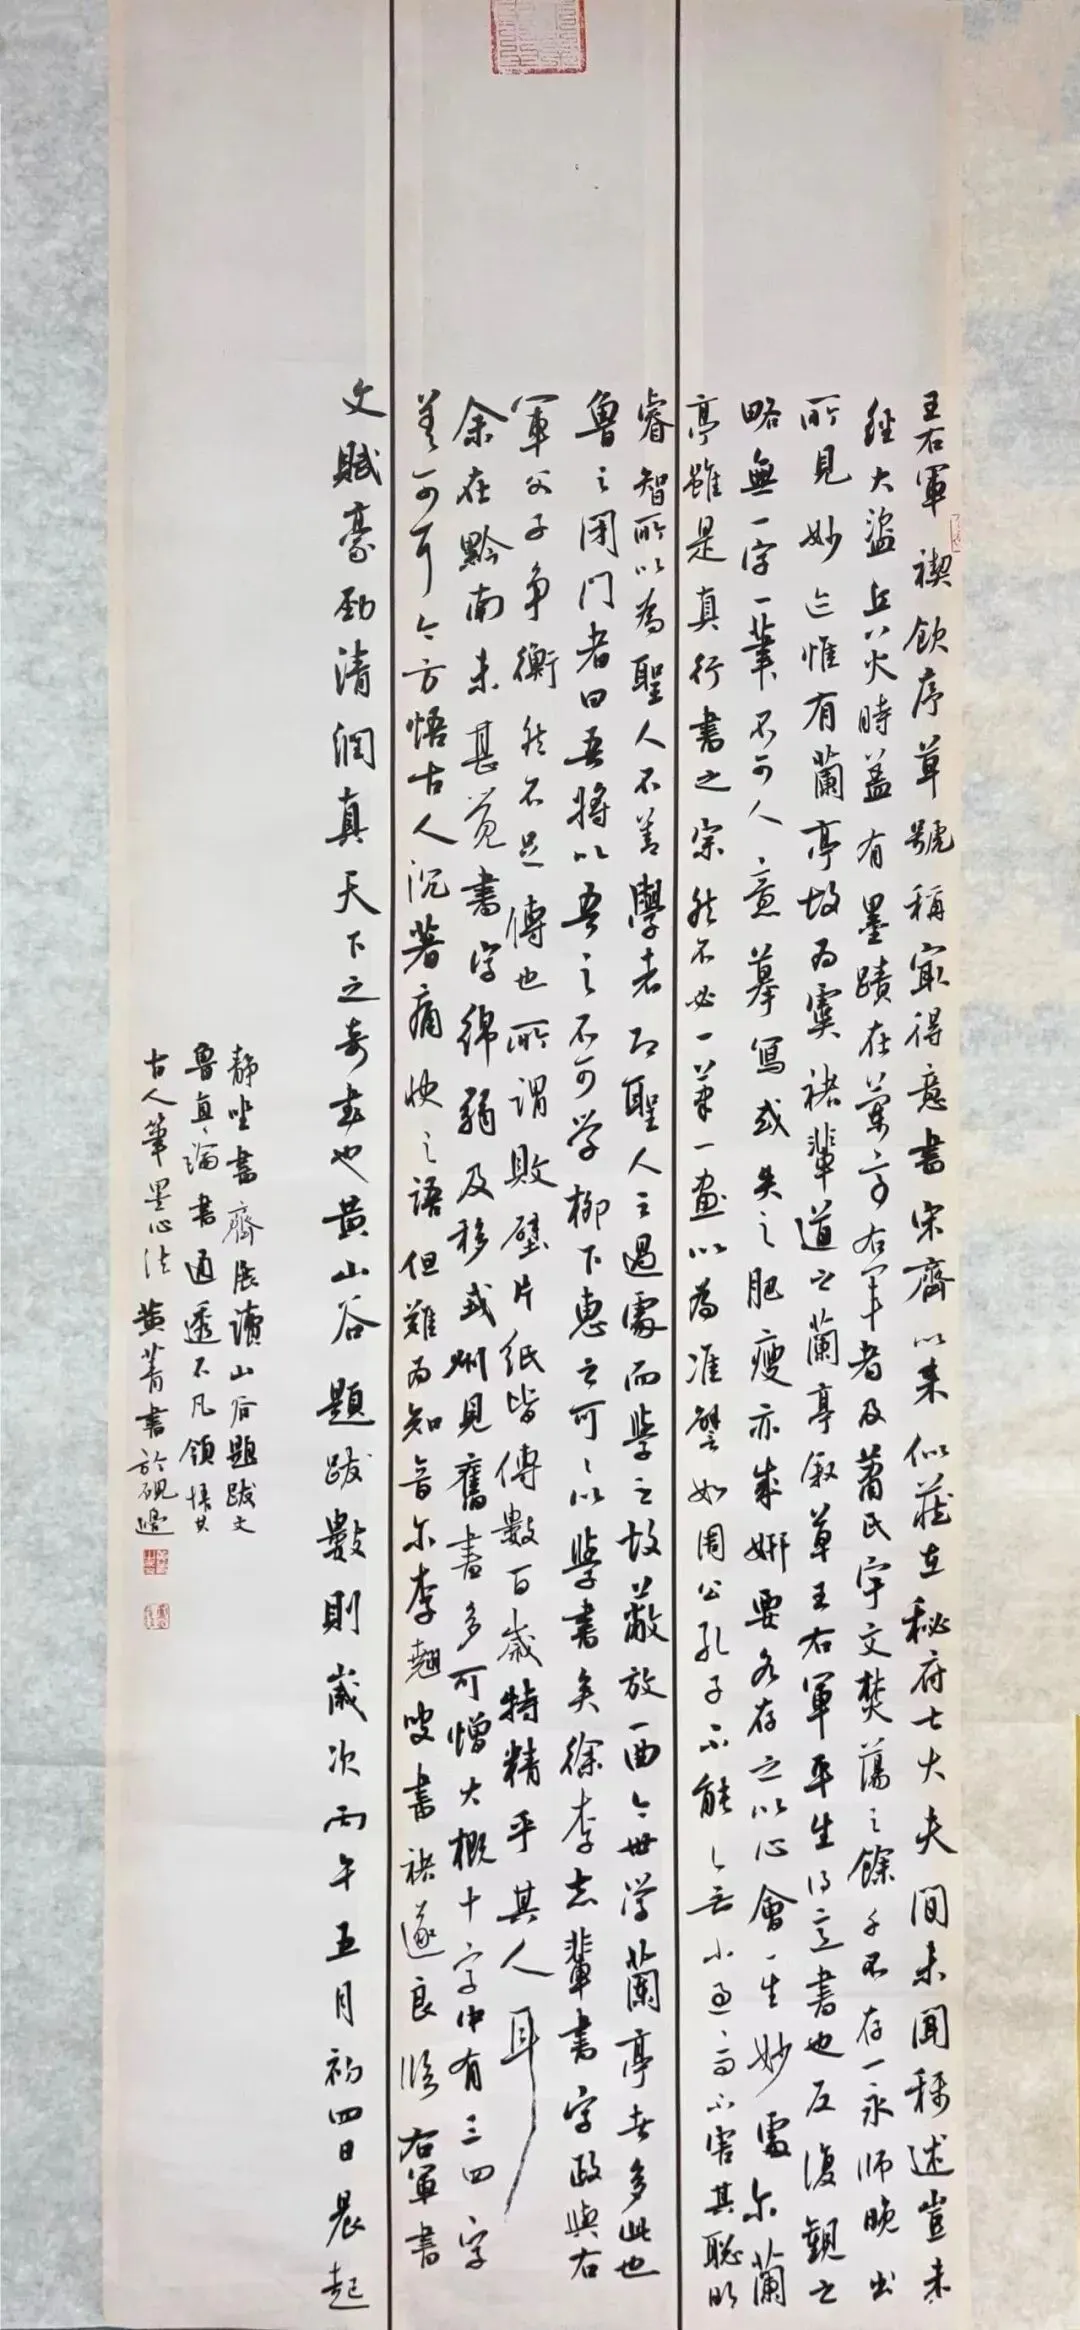 王右軍禊飲序草號稱冣得意書宋齊以來似藏在秘府士大夫間未聞稱述豈未
經大盜兵火時蓋有墨蹟在蘭亭右軍者及蕭氏宇文焚蕩之餘千不存一永師晚出
所見妙迹惟有蘭亭故為虞褚輩道之蘭亭叙草王右軍平生得意書也反復觀之
略無一字一筆不可人意摹寫或失之肥瘦亦成妍要各存之以心會一生妙處尔蘭
亭雖是真行書之宗然不必一筆一畫以為准譬如周公孔子不能〻無小過〻而不害其聡明
睿智所以為聖人不善學者即聖人之過處而學之故蔽於一曲今世学蘭亭者多此也
魯之閉門者曰吾將以吾之不可学柳下惠之可〻以學書矣徐李志輩書字政與右
軍父子争衡然不足傳也所謂敗壁片紙皆傳數百歲特精乎其人耳
余在黔南未甚覚書字綿弱及移戎州見舊書多可憎大概十字中有三四字
差可耳今方悟古人沉著痛快之語但難為知音尔李翹叟書褚遂良臨右軍書
文賦豪勁清潤真天下之奇書也黄山谷題跋數則歲次丙午五月初四日晨起
靜坐書齋展讀山谷題跋文
魯直論書通透不凡領悟其
古人筆墨心法黄菁書於硯邊